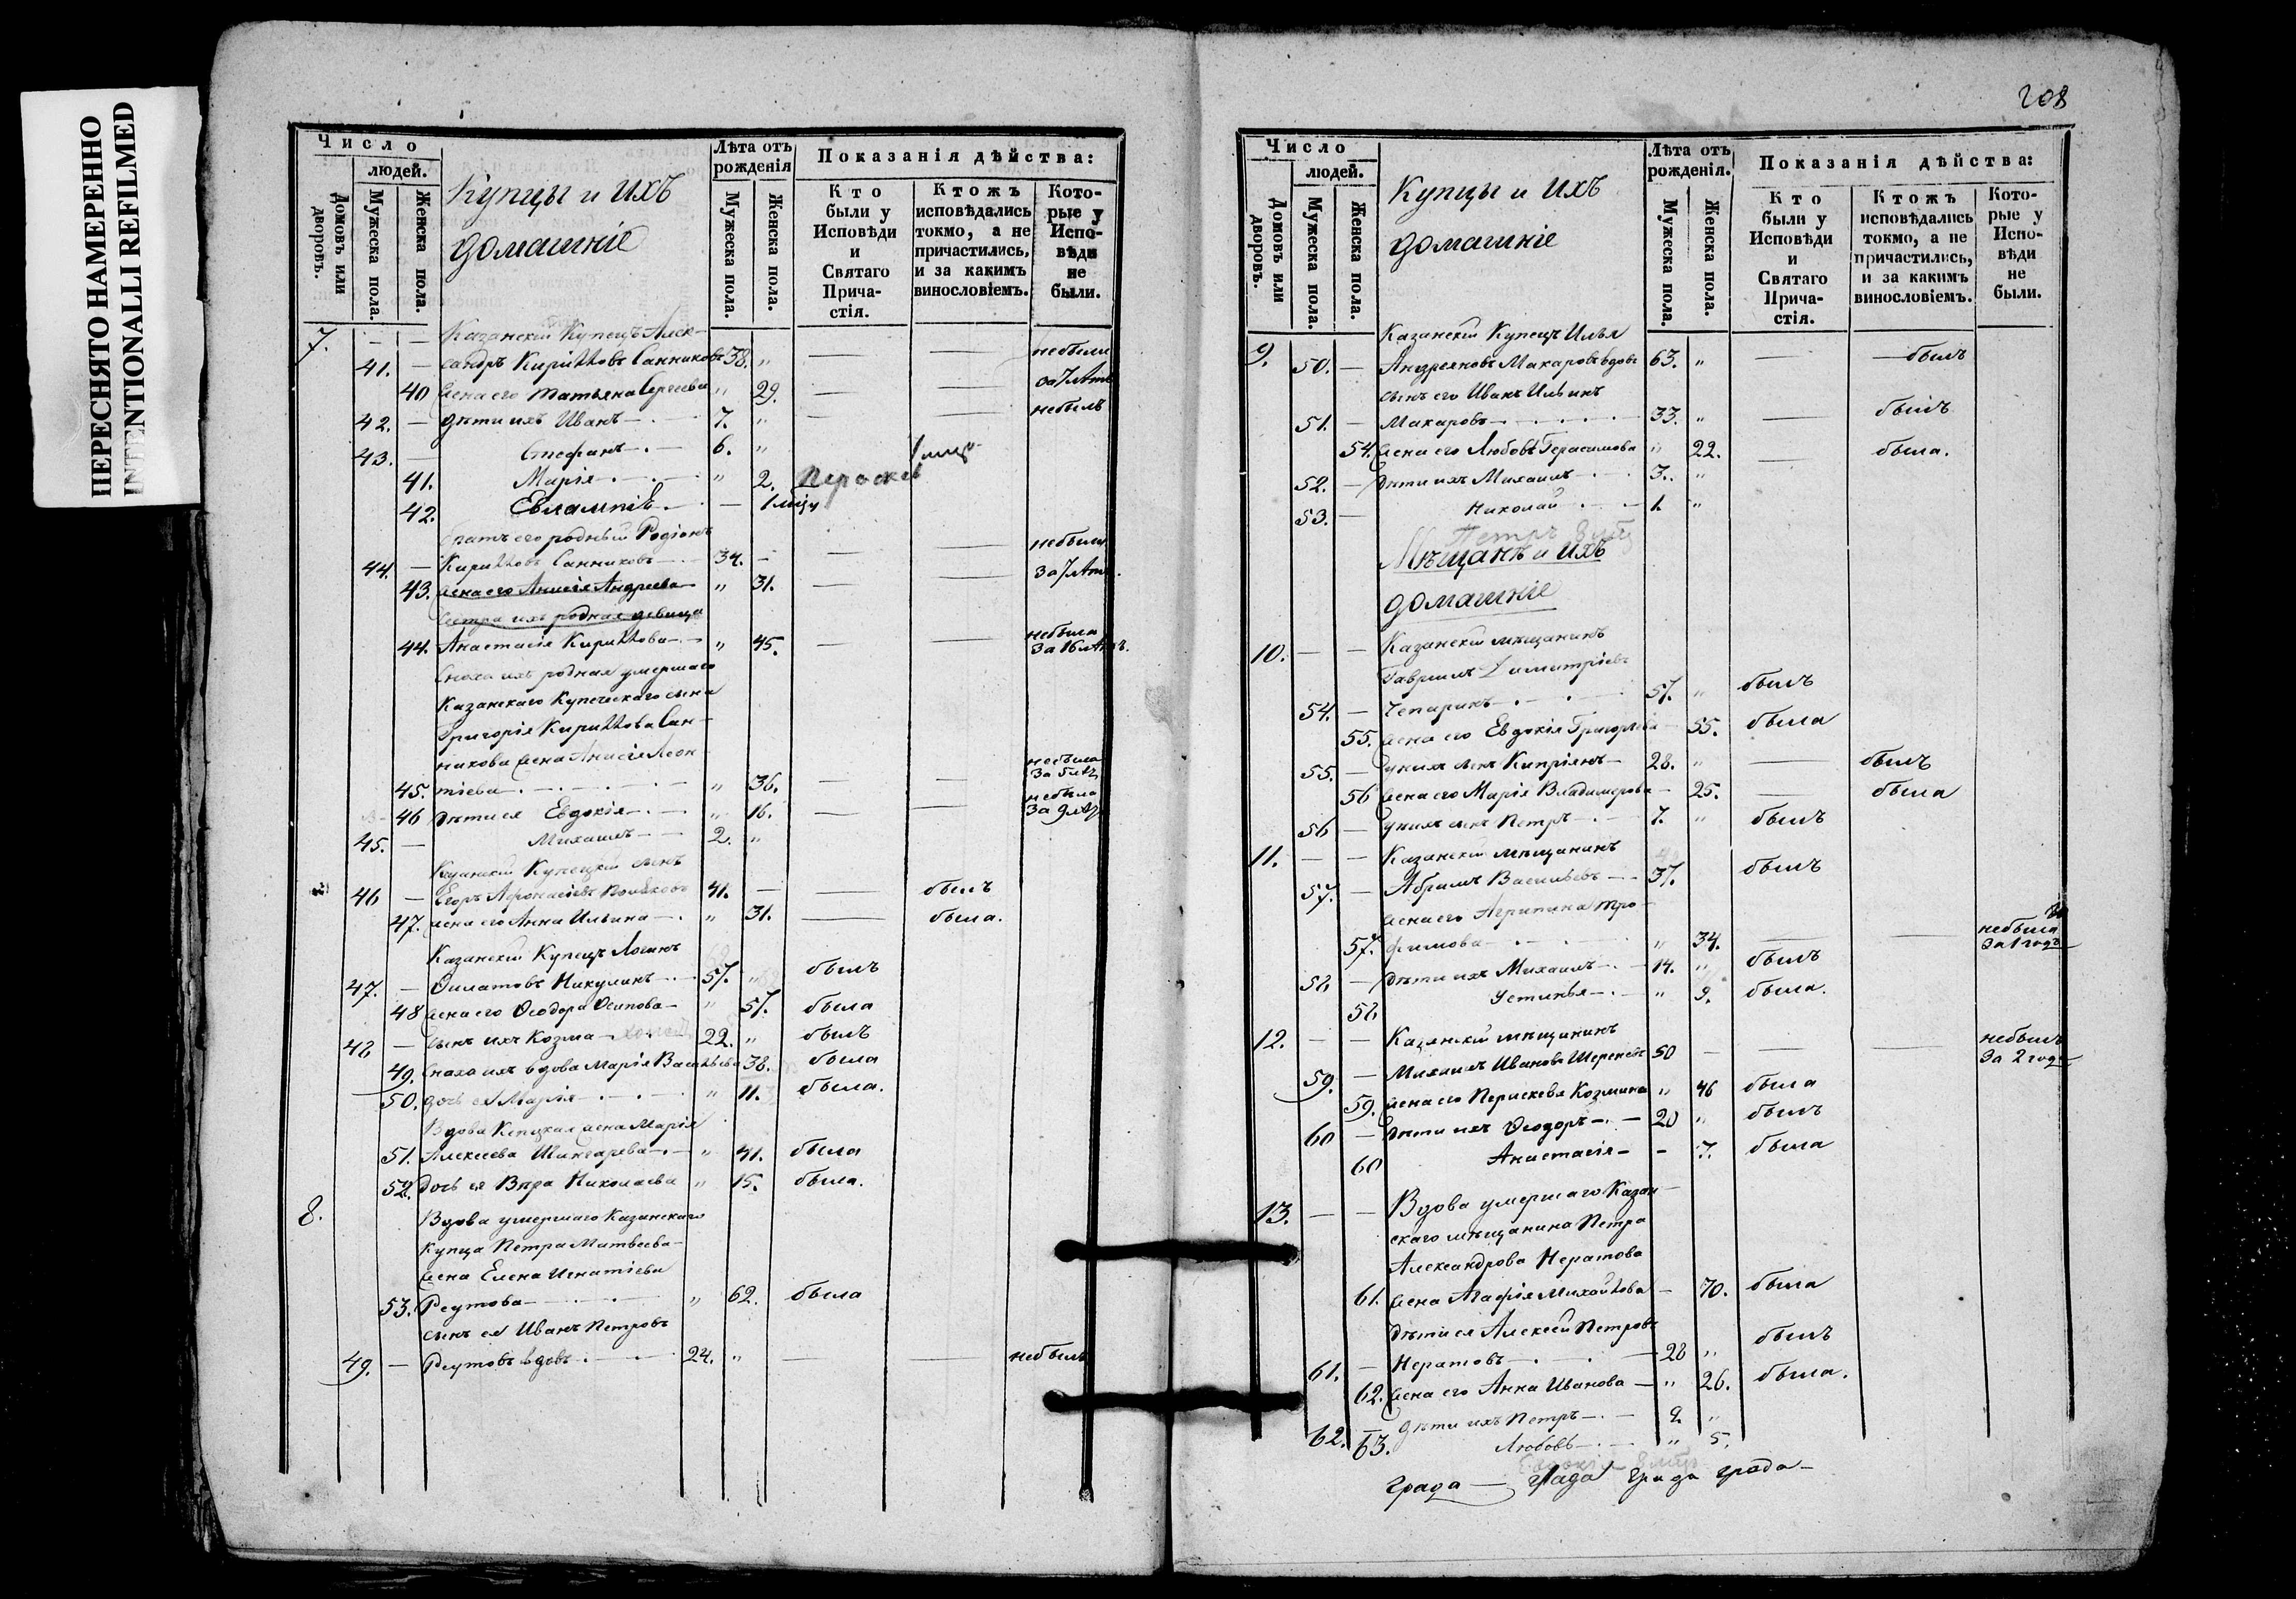 ПЕРЕСНЯТО НАМЕРЕННО
INTENTIONALLI REFILMED
Число
людей.
Домовъ или дворовъ.
Мужеска пола.
Женска пола.
Купцы и ихъ
домашніе
Лѣта отъ рожденія
Мужеска пола.
Женска пола.
Показанія дѣйства:
Кто были у Исповѣди и Святаго Прича-стія.
Ктожъ исповѣдались токмо, а не причастились, и за какимъ винословіемъ.
Кото-рые у Испо-вѣди не были.
7. — — Казанскій Купецъ Алек-
41. — сандръ Кирилловъ Санниковъ 38. „ — — небыли
40 жена его Татьяна Сергеева „ 29. — —
42. — дѣти ихъ Иванъ 7. „ — — небылъ
43. — Стефанъ 6. „
41. Марія „ 2.
42. Евлампіѣ — 1 мѣсц
братъ его родный Родіонъ
44. — Кирилловъ Санниковъ 34. — — — небыли
43. жена его Анисія Андреева „ 31. — — за 7 лѣтъ.
Сестра ихъ родная девица
44. Анастасія Кириллова „ 45. — — небыла за 16 лѣтъ.
Сноха ихъ родная умершаго
Казанскаго Купеческаго сына
Григорія Кириллова Сан-
никова жена Анисія Леон-
45. тіева „ 36. — — небыла за 5 лѣ
46 дѣти ея Евдокія „ 16. — — небыла за 9 лѣ
45. — Михаилъ 2. „
Казанскій Купецкій сынъ
46 — Егоръ Афонасіевъ 41. — — былъ
47. жена его Анна Ильина „ 31. — была.
Казанскій Купецъ Логинъ
47. — Филатовъ Никулинъ 57. „ былъ
48 жена его Ѳеодора Осипова „ 57. была
48 — сынъ ихъ Козма 22. „ былъ
49. Сноха ихъ вдова Марія Васильева 38. была
50. дочь ея Марія „ 11. была.
Вдова Купецкая жена Марія
51. Алексеева „ 41. была
52. дочь ея Вѣра Николаева „ 15. была.
8. Вдова умершаго Казанскаго
Купца Петра Матвеева
жена Елена Игнатіева
53. Реутова „ 62. была
сынъ ея Иванъ Петровъ
49. — Реутовъ вдовъ 24. „ — — небылъ
208
Число
людей.
Домовъ или дворовъ.
Мужеска пола.
Женска пола.
Купцы и ихъ
домашніе
Лѣта отъ рожденія.
Мужеска пола.
Женска пола.
Показанія дѣйства:
Кто были у Исповѣди и Святаго Прича-стія.
Ктожъ исповѣдались токмо, а не причастились, и за какимъ винословіемъ.
Кото-рые у Испо-вѣди не были.
Казанскій Купецъ Илья
9. 50. — Андреяновъ Макаровъ вдовъ 63. „ — — былъ
сынъ его Иванъ Ильинъ
51. — Макаровъ 33. „ — былъ
54. жена его Любовь Герасимова „ 22. — была.
52. — дѣти ихъ Михаилъ 3. „
53. — Николай 1. „
Петръ
Мѣщанѣ и ихъ
домашніе
10. — — Казанскій мѣщанинъ
Гавриилъ Димитріевъ
54. — Чепаринъ 57. „ былъ
55. жена его Евдокія Григорьева — 55. была
55. — у нихъ сынъ Кипріянъ 28. „ — былъ
56 жена его Марія Владимерова — 25. — была
56 — у нихъ сынъ Петръ 7. „ былъ
11. — — Казанскій мѣщанинъ
57. — Абрамъ Васильевъ 37. былъ
жена его Агрипина Тро-
57. фимова „ 34. — — небыла за 1 годъ
58 — дѣти ихъ Михаилъ 14. „ былъ
58. Устинья „ 9. была.
12. — — Казанскій мѣщанинъ
59. — Михаилъ Ивановъ 50 — — — небылъ за 2 года
59. жена его Перискевя Козмина „ 46 была
60 — дѣти ихъ Ѳеодоръ 20 „ былъ
60 Анастасія — 7. была
13. — — Вдова умершаго Казан-
скаго мѣщанина Петра
Александрова Нератова
61. жена Агафія Михайлова — 70. была
дѣти ея Алексей Петровъ
61. — Нератовъ 28 „ былъ
62. жена его Анна Иванова „ 26. была.
62. — дѣти ихъ Петръ 9. „
63. Любовь „ 5.
Евдокія
града — града града града